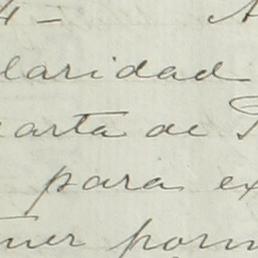 4 - A
laridad
carta de
para ex
ner porm